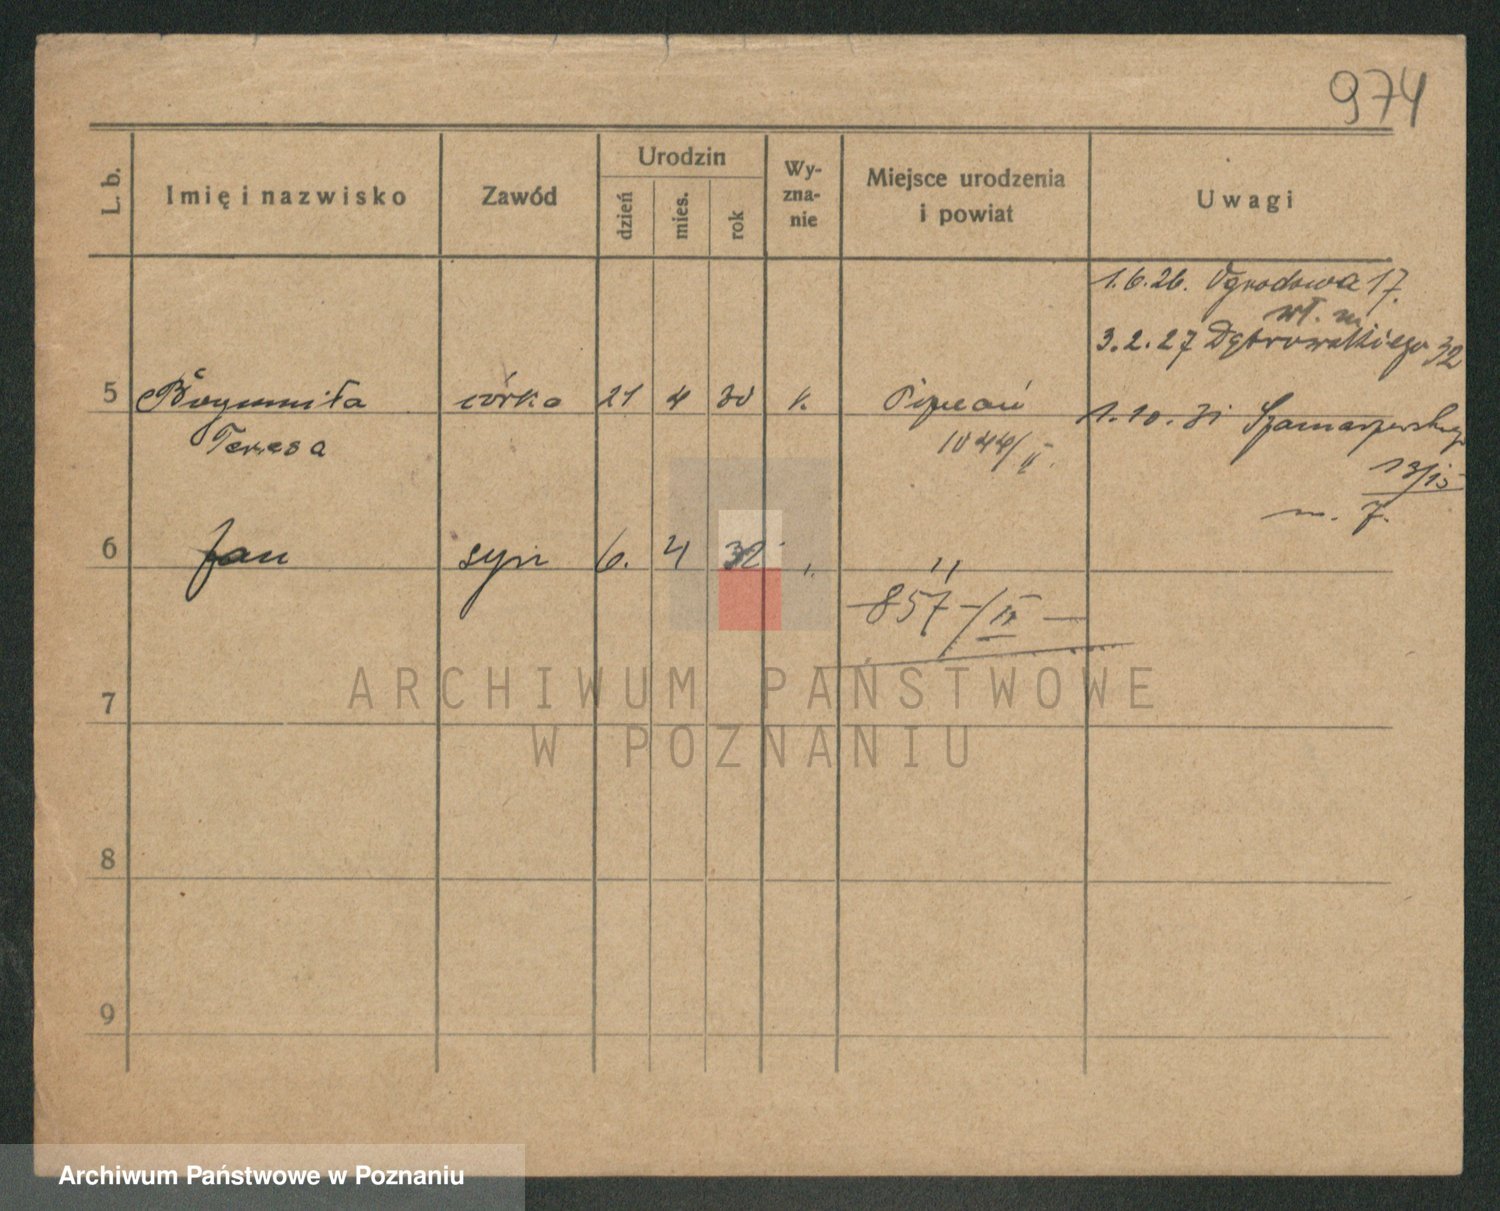 974
L. b. Imię i nazwisko Zawód Urodzin dzień mies. rok Wy-zna-nie Miejsce urodzenia i powiat Uwagi
1.6.26. Ogrodowa 17.
wł. m.
3.2.27 Dąbrowskiego 32
5 Bogumiła córka 21 4 30 k. Poznań 1.10.31 Szamarzewskiego
Teresa 1044/II.
13/15
m. 7.
6 Jan syn 6. 4 32 "
857/II
7
8
9
ARCHIWUM PAŃSTWOWE
W POZNANIU
Archiwum Państwowe w Poznaniu